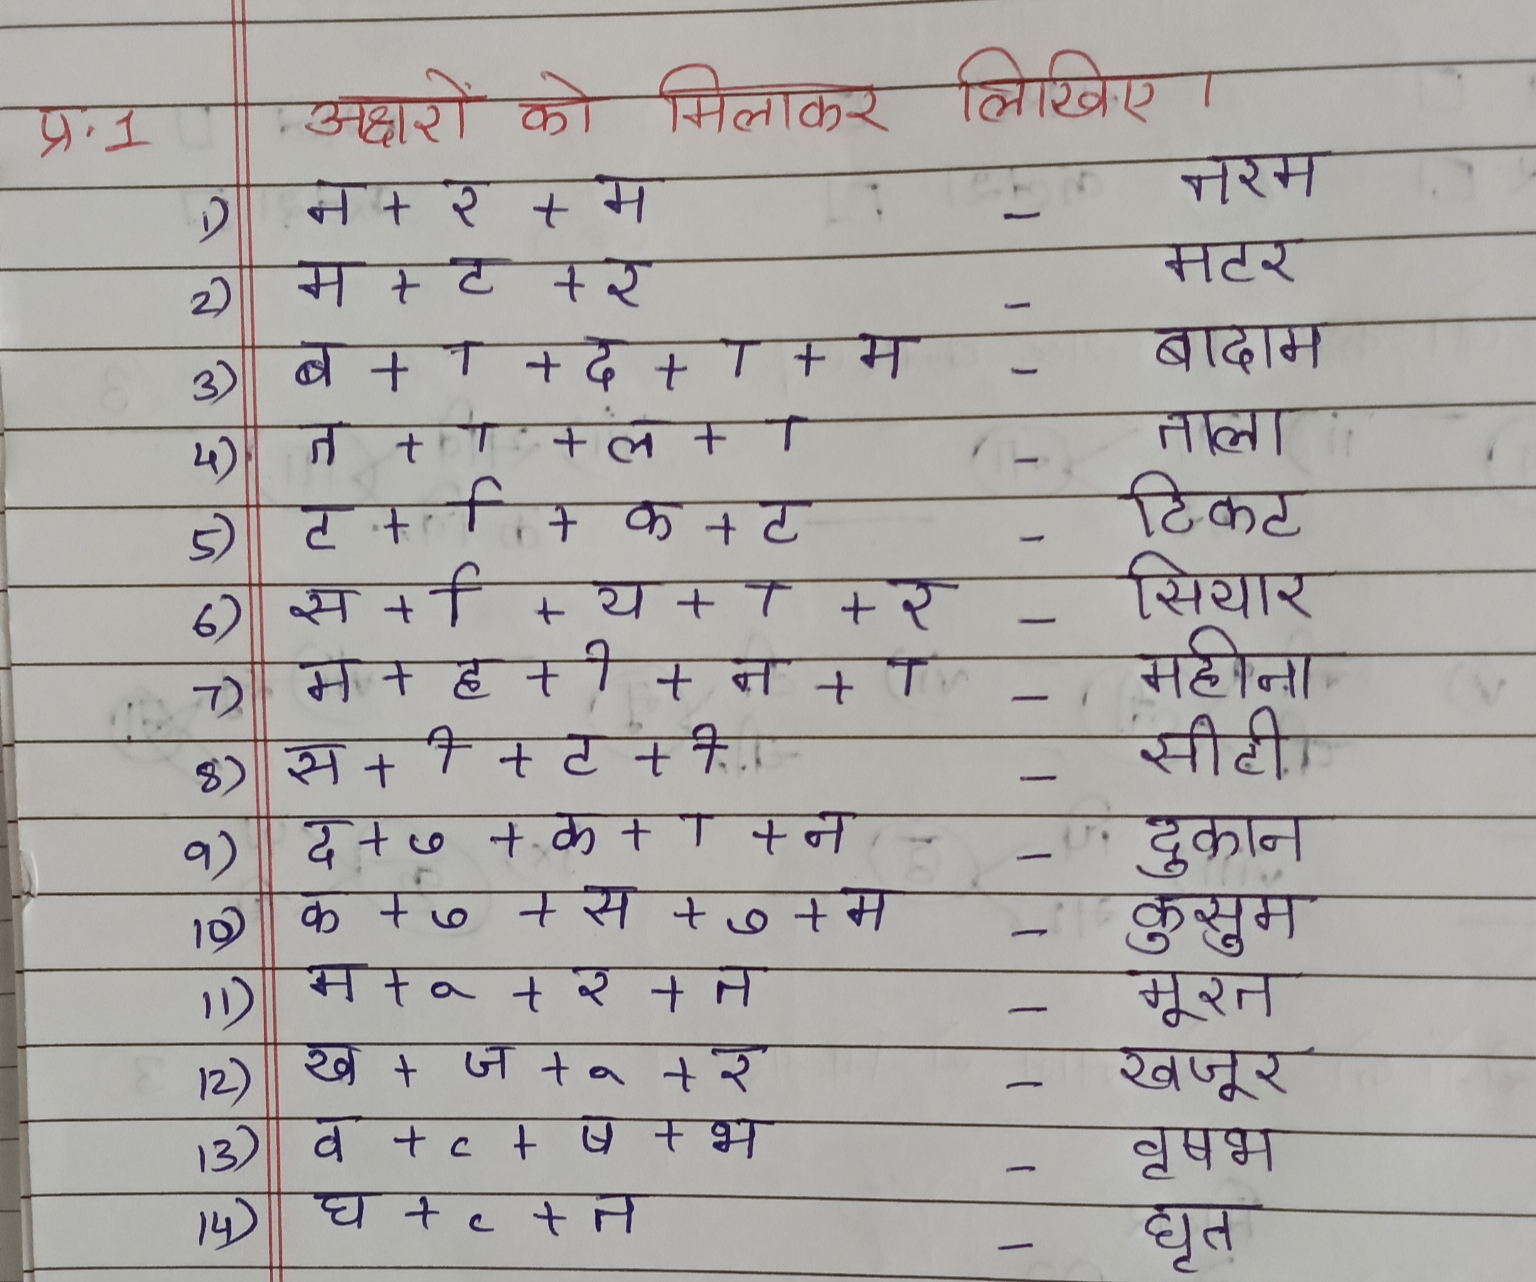 प्र.1 अक्षरों को मिलाकर लिखिए ।
1) न + र + म - नरम
2) म + ट + र - मटर
3) ब + ा + द + ा + म - बादाम
4) त + ा + ल + ा - ताला
5) ट + ि + क + ट - टिकट
6) स + ि + य + ा + र - सियार
7) म + ह + ी + न + ा - महीना
8) स + ी + ट + ी - सीटी
9) द + ु + क + ा + न - दुकान
10) क + ु + स + ु + म - कुसुम
11) म + ू + र + त - मूरत
12) ख + ज + ू + र - खजूर
13) व + ृ + ष + भ - वृषभ
14) घ + ृ + त - घृत